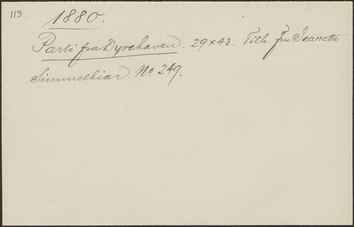 113
1880.
Parti fra Dyrehaven. 29x43. Tilh. Fru Jeanette
No 249.